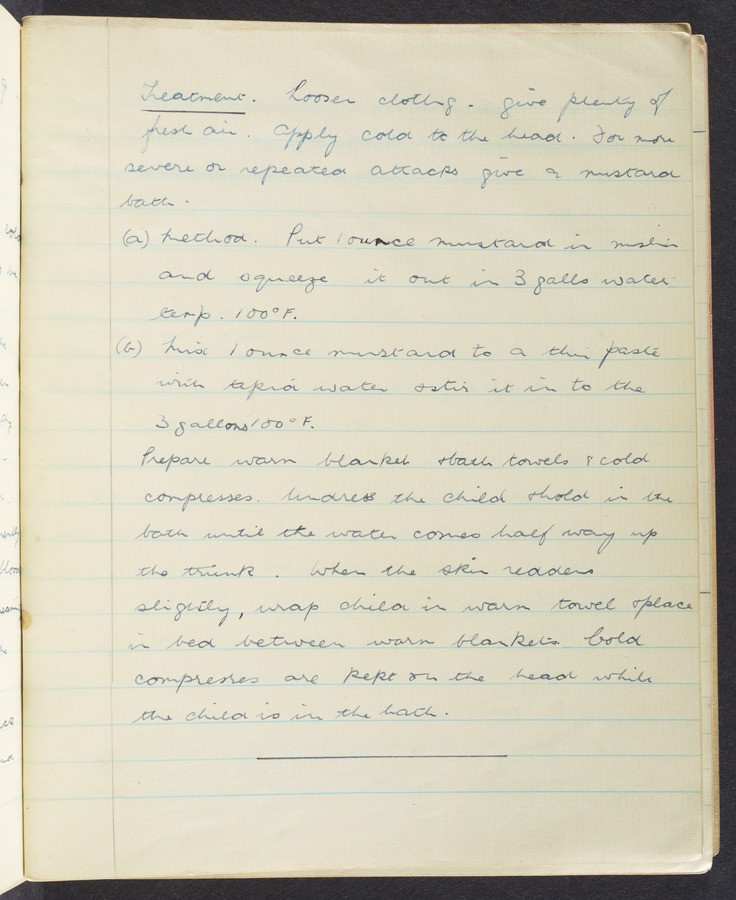 Treatment. Loosen clothing. give plenty of
fresh air. Apply cold to the head. For more
severe or repeated attacks give a mustard
bath.
(a) Method. Put 1 ounce mustard in muslin
and squeeze it out in 3 galls water
temp. 100°F.
(b) Mix 1 ounce mustard to a thin paste
with tepid water & stir it in to the
3 gallons 100°F.
Prepare warm blanket & bath towels & cold
compresses. Undress the child & hold in the
bath until the water comes half way up
the trunk. When the skin reddens
slightly, wrap child in warm towel & place
in bed between warm blankets. Cold
compresses are kept on the head while
the child is in the bath.